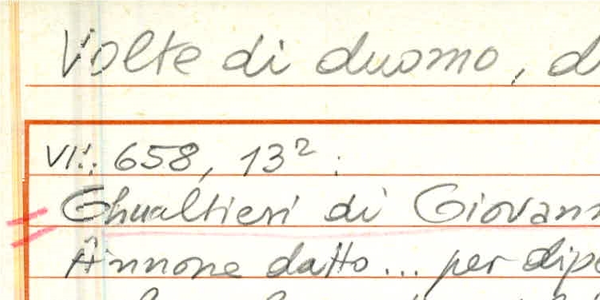 Volte di duomo, d
VI: 658, 13²:
Ghualtieri di Giovann
Annone datto... per dipe